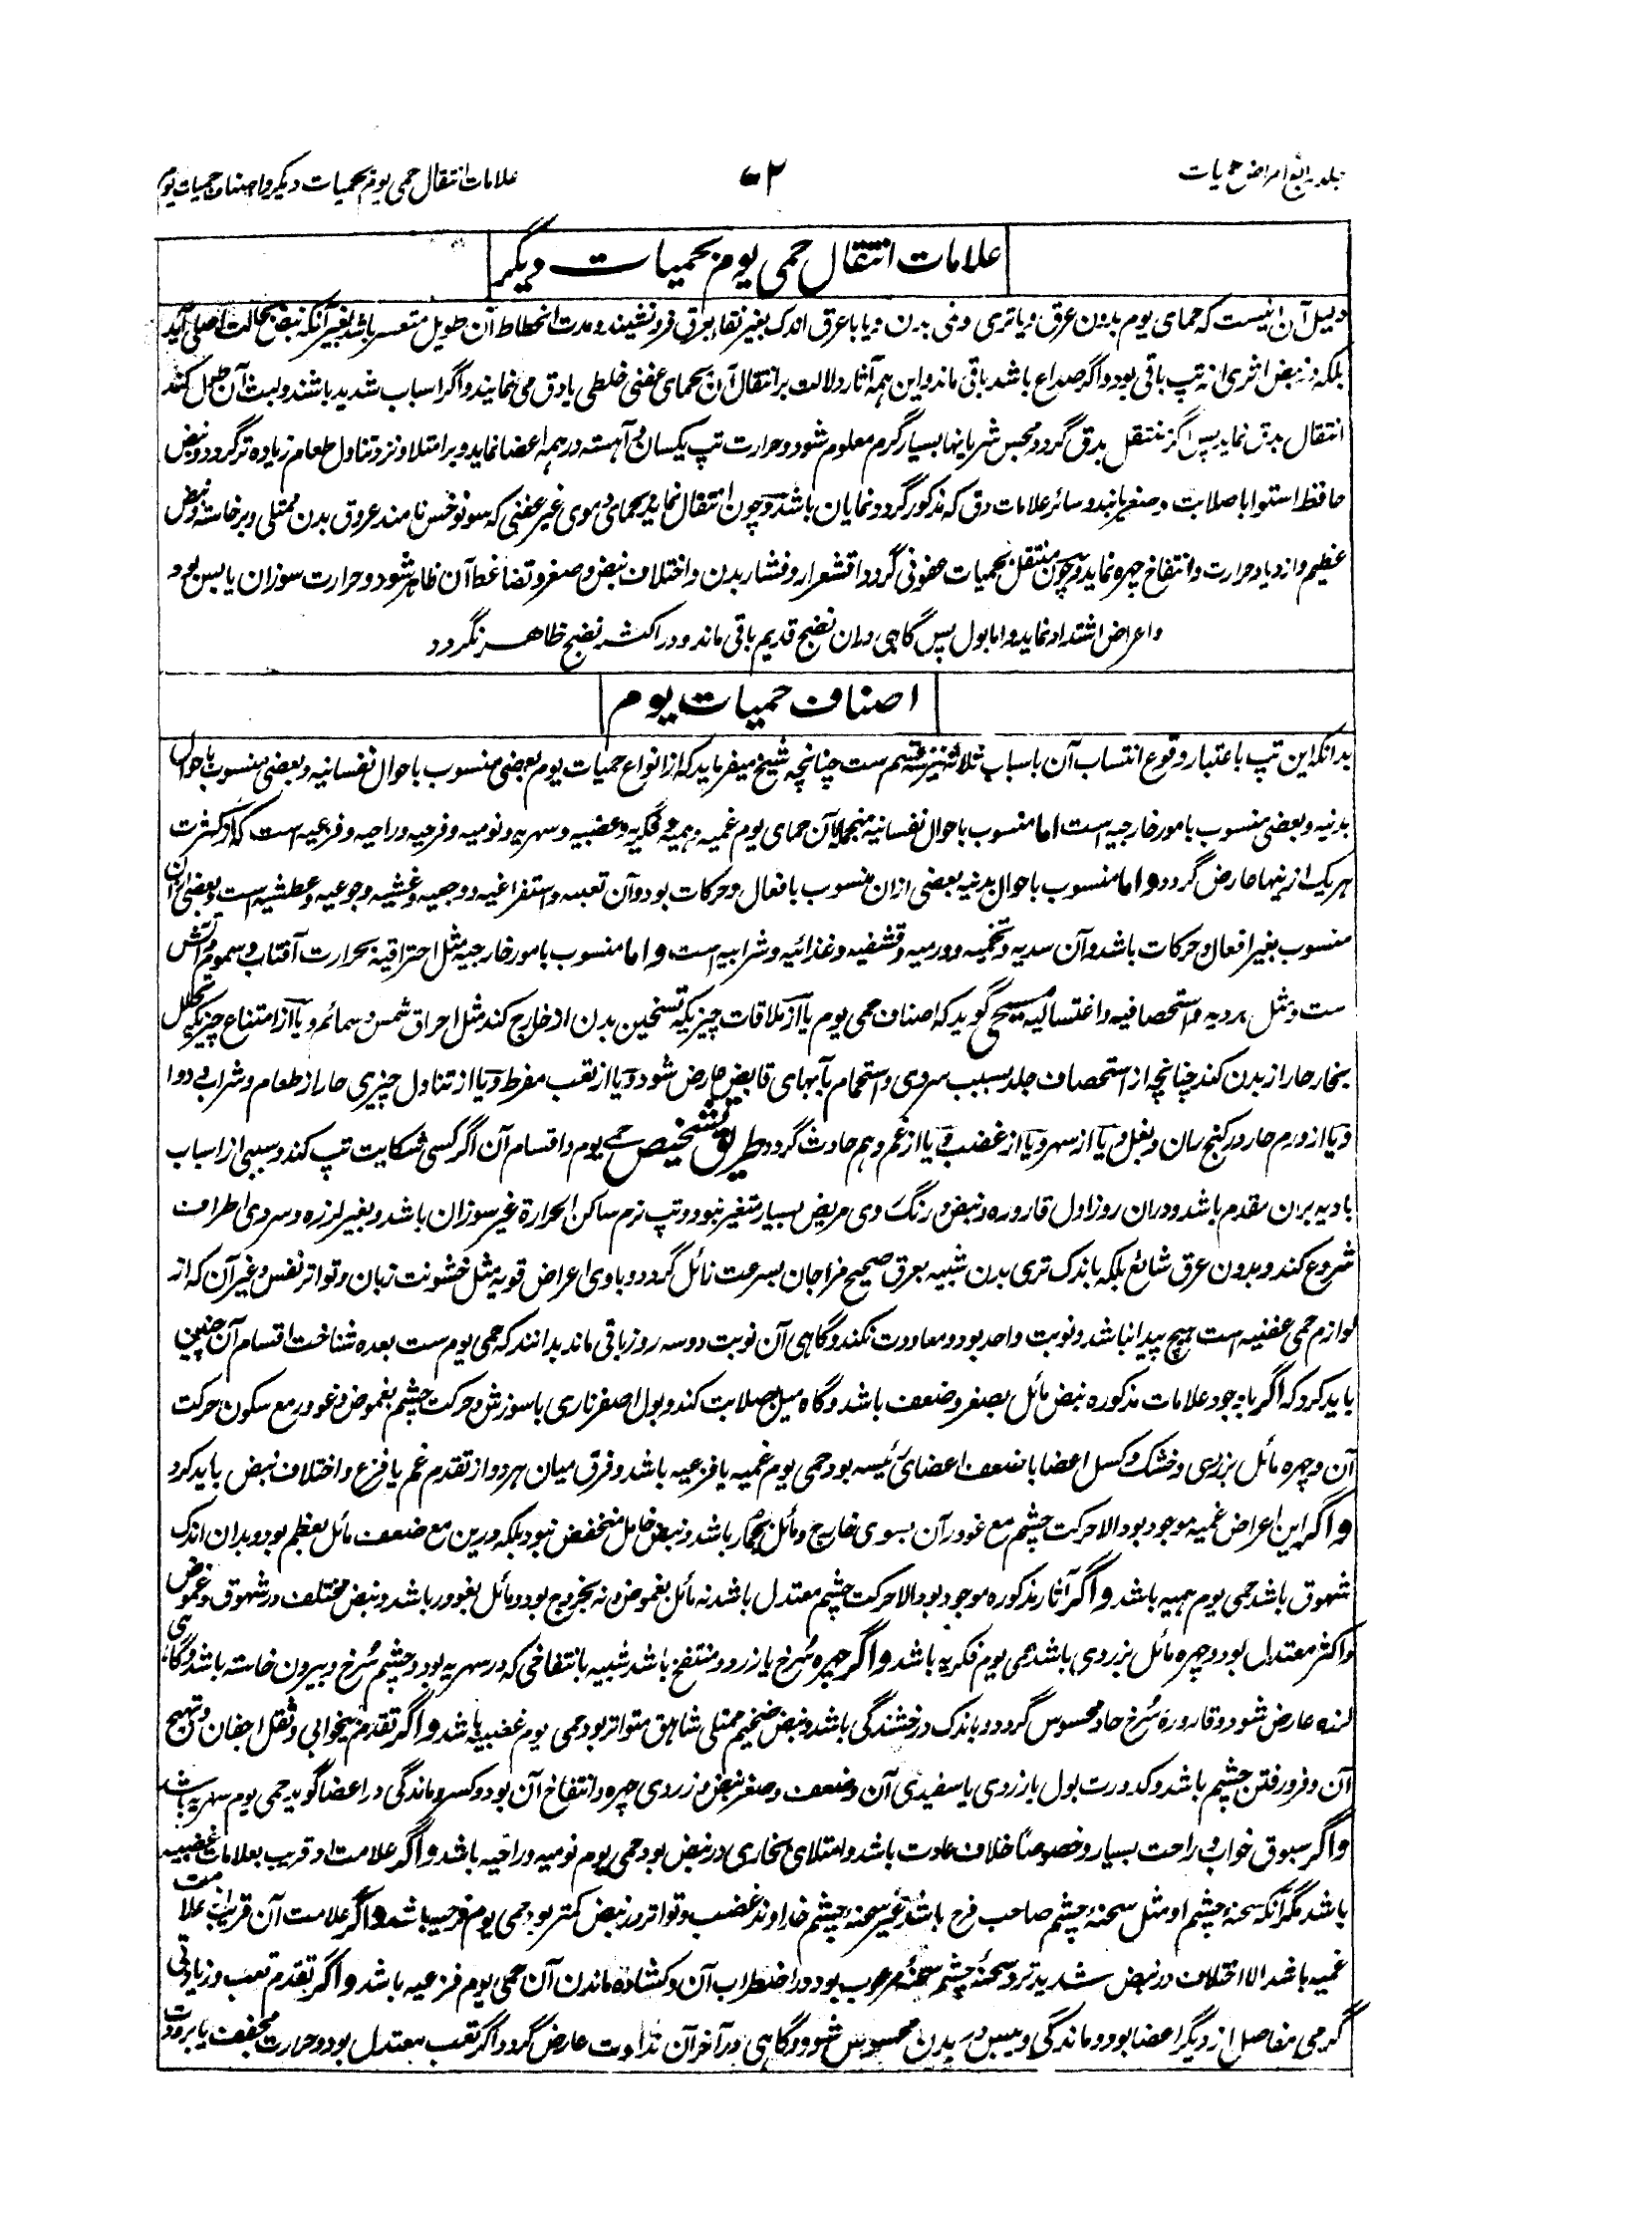 جلد رابع امراض حمیات
۷۰۲
علامات انتقال حمی یوم بحمیات دیگر و اصناف حمیات یوم
علامات انتقال حمی یوم بحمیات دیگر
دلیل آن اینست که حمای یوم بدون عرق و یا تری و نمی بدن و یا با عرق اندک بغیر نقاء بعرق فرو نشیند و مدت انحطاط آن طویل متعسر باشد بغیر آنکه نبض بحالت اصلی آید
بلکه در نبض اثری از تپ باقی بود و اگر صداع باشد باقی ماند و این همه آثار دلالت بر انتقال آن بحمای عفنی خلطی یا دق می نمایند و اگر اسباب شدید باشند و لبث آن طول کند
انتقال بدق نماید پس اگر منتقل بدق گردد مجس شریانها بسیار گرم معلوم شود و حرارت تپ یکسان و آهسته در همه اعضا نماید و بر امتلا و نزد تناول طعام زیاده تر گردد و نبض
حافظ استوا با صلابت و صغر یابند و سائر علامات دق که مذکور گردد نمایان باشد و چون انتقال نماید بحمای دموی غیر عفنی که سونوخس نامند عروق بدن ممتلی و برخاسته و نبض
عظیم و ازدیاد حرارت و انتفاخ چهره نماید و چون منتقل بحمیات عفونی گردد اقشعرار و فشار بدن و اختلاف نبض و صغر و تضاغط آن ظاهر شود و حرارت سوزان یا بس بود
و اعراض اشتداد نماید و اما بول پس گاهی دران نضج قدیم باقی ماند و در اکثر نضج ظاهر نگردد
اصناف حمیات یوم
بدانکه این تپ باعتبار وقوع انتساب آن باسباب ثلاثه نیز سه قسم ست چنانچه شیخ میفرماید که از انواع حمیات یوم بعضی منسوب باحوال نفسانیه و بعضی منسوب باحوال
بدنیه و بعضی منسوب بامور خارجیه است اما منسوب باحوال نفسانیه منجمله آن حمای یوم غمیه و همیه و فکریه و غضبیه و سهریه و نومیه و فرحیه و راحیه و فزعیه است که از کثرت
هر یک ازینها عارض گردد و اما منسوب باحوال بدنیه بعضی ازان منسوب بافعال و حرکات بود و آن تعبیه و استفراغیه و وجعیه و غشیه و جوعیه و عطشیه است و بعضی ازان
منسوب بغیر افعال و حرکات باشد و آن سدیه و تخمیه و ورمیه و قشفیه و غذائیه و شرابیه است و اما منسوب بامور خارجیه مثل احتراقیه بحرارت آفتاب و سموم و آتش
ست و مثل بردیه و استحصافیه و اغتسالیه مسیحی گوید که اصناف حمی یوم یا از ملاقات چیزیکه تسخین بدن از خارج کند مثل احراق شمس و سمائم و یا از امتناع چیزیکه تحلل
بخار حار از بدن کند چنانچه از استحصاف جلد بسبب سردی و استحمام بآبهای قابض عارض شود و یا از تعب مفرط و یا از تناول چیزی حار از طعام و شراب و دوا
و یا از ورم حار در کنج ران و بغل و یا از سهر و یا از غضب و یا از غم و هم حادث گردد طریق تشخیص حمی یوم و اقسام آن اگر کسی شکایت تپ کند و سببی از اسباب
بادیه بران مقدم باشد و دران روز اول قاروره و نبض و رنگ روی مریض بسیار متغیر نبود و تپ نرم ساکن الحرارة غیر سوزان باشد و بغیر لرزه و سردی اطراف
شروع کند و بدون عرق شائع بلکه باندک تری بدن شبیه بعرق صحیح مزاجان بسرعت زائل گردد و با وی اعراض قویه مثل خشونت زبان و تواتر نفس و غیر آن که از
لوازم حمی عفنیه است هیچ پیدا نباشد و نوبت واحد بود و معاودت نکند و گاهی آن نوبت دو سه روز باقی ماند بدانند که حمی یوم ست بعده شناخت اقسام آن چنین
باید کرد که اگر با وجود علامات مذکوره نبض مائل بصغر و ضعف باشد و گاه میل بصلابت کند و بول اصفر ناری با سوزش و حرکت چشم بغموض و غور مع سکون حرکت
آن و چهره مائل بزردی و خشک و کسل اعضا با ضعف اعضای رئیسه بود حمی یوم غمیه یا فزعیه باشد و فرق میان هر دو از تقدم غم یا فزع و اختلاف نبض باید کرد
و اگر این اعراض غمیه موجود بود الا حرکت چشم مع غور آن بسوی خارج و مائل باشد و نبض خامل منخفض نبود بلکه درین مع ضعف مائل بعظم بود و بدان اندک
شهوق باشد حمی یوم همیه باشد و اگر آثار مذکوره موجود بود الا حرکت چشم معتدل باشد نه مائل بغموض و نه بخروج بود و مائل بغور باشد و نبض مختلف در شهوق و غموض
و اکثر معتدل بود و چهره مائل بزردی باشد حمی یوم فکریه باشد و اگر چهره سُرخ یا زرد و منتفخ باشد شبیه بانتفاخی که در سهریه بود و چشم سُرخ و بیرون خاسته باشد و گاهی
لرزه عارض شود و قاروره سُرخ حاد محسوس گردد و باندک درخشندگی باشد و نبض ضخیم ممتلی شاهق متواتر بود حمی یوم غضبیه باشد و اگر تقدم بیخوابی و ثقل اجفان و تهیج
آن و فرو رفتن چشم باشد و کدورت بول با زردی یا سفیدی آن و ضعف و صغر نبض و زردی چهره و انتفاخ آن بود و کسر و ماندگی در اعضا گوید حمی یوم سهریه باشد
و اگر سبوق خواب و راحت بسیار و خصوصاً خلاف عادت باشد و امتلای بخاری در نبض بود حمی یوم نومیه و راحیه باشد و اگر علامت او قریب بعلامات غضبیه
باشد مگر آنکه سحنه چشم او مثل سحنه چشم صاحب فرح باشد غیر سحنه چشم خداوند غضب و تواتر در نبض کمتر بود حمی یوم فرحیه باشد و اگر علامت آن قریب بعلامت
غمیه باشد الا اختلاف در نبض شدیدتر و سحنهٔ چشم سحنهٔ مرعوب بود در اضطراب آن و کشاده ماندن آن حمی یوم فزعیه باشد و اگر تقدم تعب و زیادتی
گرمی مفاصل از دیگر اعضا بود و ماندگی و یبس در بدن محسوس شود و گاهی در آخر آن نداوت عارض گردد اگر تعب معتدل بود و حرارت مجفف یا برودت